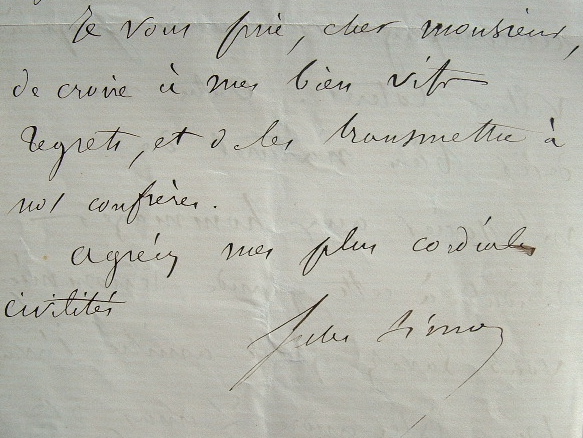 Je vous prie, cher monsieur,
de croire à mes bien vifs
regrets, et de les transmettre à
nos confrères.
agréez mes plus cordiales
civilités
Jules Simon